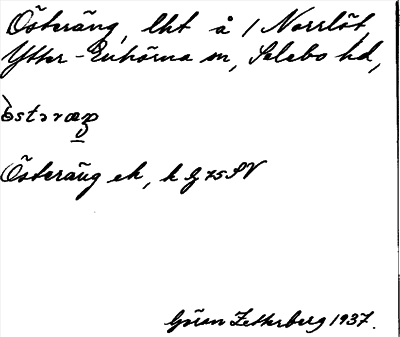 Österäng, lht å 1 Norrlöt,
Ytter-Enhörna sn, Selebo hd,
Österäng ek, k
Göran Zetterberg 1937.